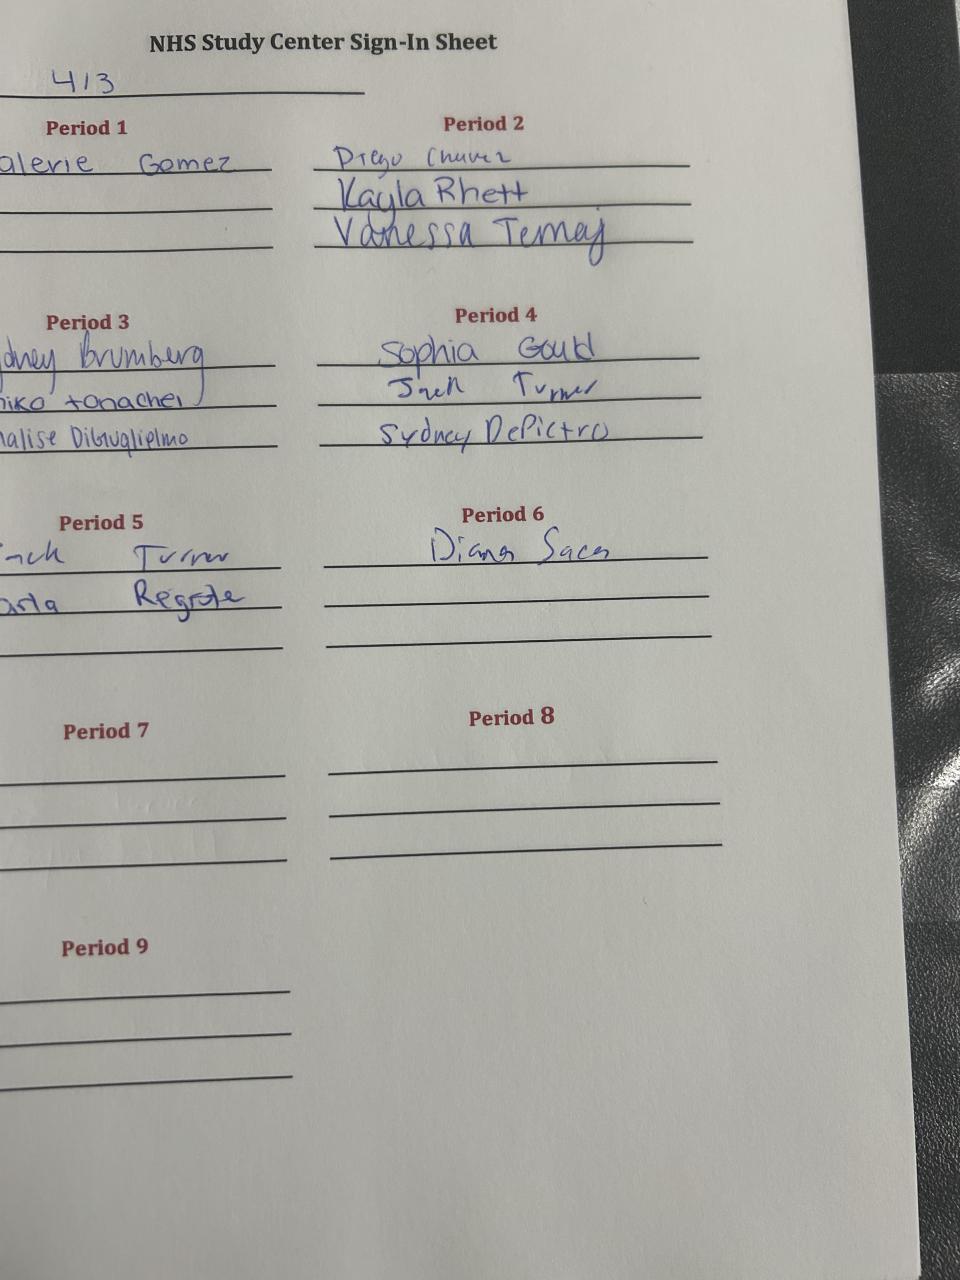 NHS Study Center Sign-In Sheet
4/3
Period 1
alerie Gomez
Period 2
Diego Chavez
Kayla Rhett
Vanessa Temaj
Period 3
dney Brumberg
niko tonachei
nalise DiGuglielmo
Period 4
Sophia Gould
Jack Turner
Sydney DePietro
Period 5
Jack Turner
arla
Period 6
Diana
Period 7
Period 8
Period 9